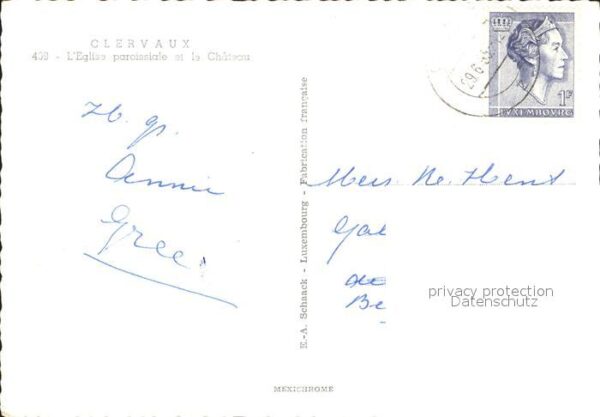 CLERVAUX
409 - L'Eglise paroissiale et le Château
29.6
1F
LUXEMBOURG
H. gr.
Annie
Gree
E.-A. Schaack - Luxembourg - Fabrication française
Gal
de
Be
privacy protection
Datenschutz
MEXICHROME